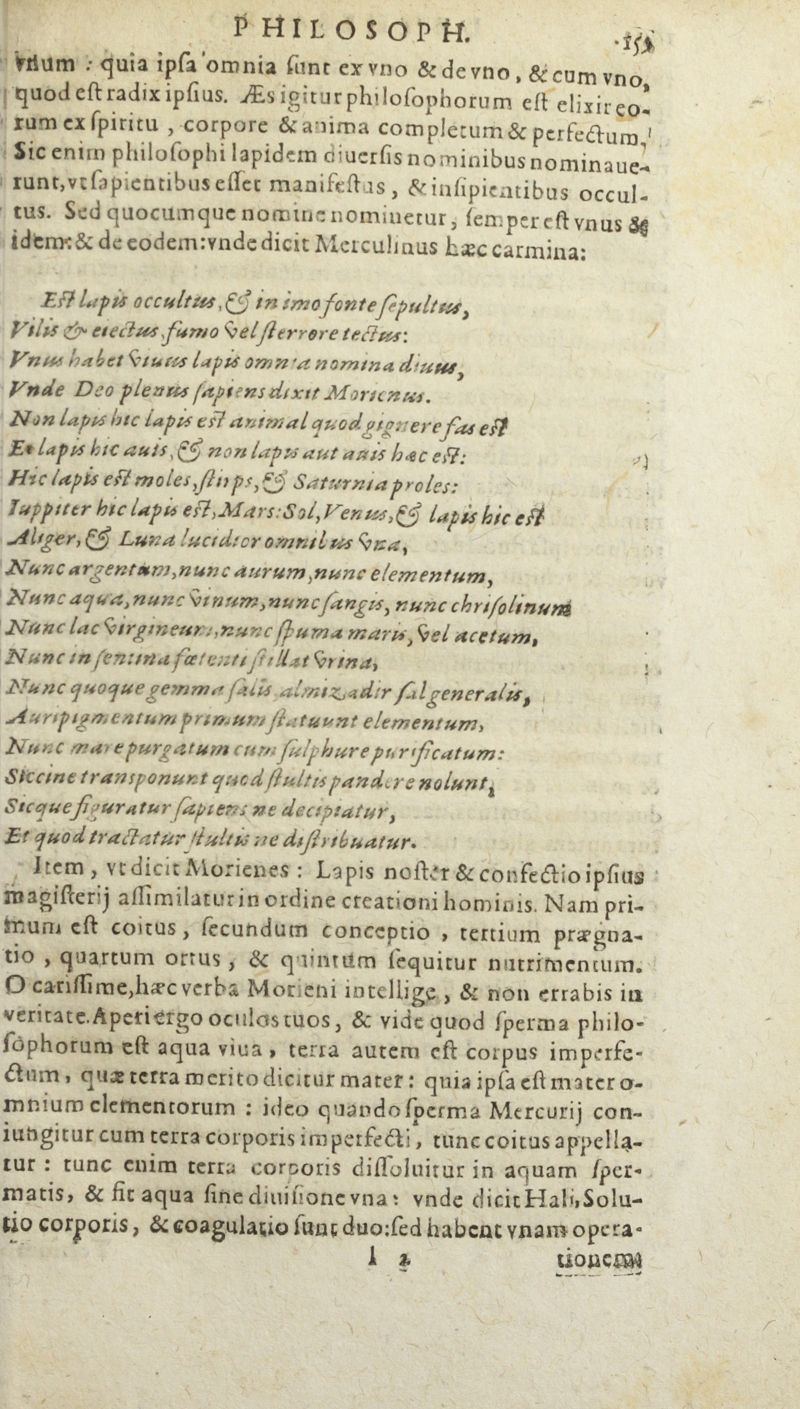 PHILOSOPH.
vnum : quia ipſa omnia ſunt ex vno & de vno, & cum vno,
quod eſt radix ipſius. Æs igitur philoſophorum eſt elixir eo-
rum ex ſpiritu , corpore & anima completum & perfectum.
Sic enim philoſophi lapidem diuerſis nominibus nominaue-
runt, vt ſapientibus eſſet manifeſtus , & inſipientibus occul-
tus. Sed quocumque nomine nominetur, ſemper eſt vnus &
idem: & de eodem: vnde dicit Merculinus hæc carmina:
Eſt lapis occultus, & in imo fonte ſepultus,
Vilis & eiectus fumo vel ſterrore tectus:
Vnus habet viuus lapis omnia nomina diuus,
Vnde Deo plenus ſapiens dixit Morienus.
Non lapis hic lapis eſt animal quod gignere fas eſt
Et lapis hic auis, & non lapis aut auis hæc eſt:
Hic lapis eſt moles, ſtirps, & Saturnia proles:
Iuppiter hic lapis eſt, Mars: Sol, Venus, & lapis hic eſt
Aliger, & Luna lucidior omnibus vna,
Nunc argentum, nunc aurum, nunc elementum,
Nunc aqua, nunc vinum, nunc ſangis, nunc chriſolinum
Nunc lac virgineum, nunc ſpuma maris, vel acetum,
Nunc in ſentina fœtenti ſtillat vrina,
Nunc quoque gemma ſalis almizadir ſal generalis,
Auripigmentum primum ſtatuunt elementum,
Nunc mare purgatum cum ſulphure purificatum:
Siccine transponunt quod ſtultis pandere nolunt,
Sicque figuratur ſapiens ne decipiatur,
Et quod tractatur ſtultis ne diſtribuatur.
Item , vt dicit Morienes : Lapis noſter & confectio ipſius
magiſterij aſſimilatur in ordine creationi hominis. Nam pri-
mum eſt coitus, ſecundum conceptio , tertium prægna-
tio , quartum ortus , & quintum ſequitur nutrimentum.
O cariſſime, hæc verba Morieni intellige , & non errabis in
veritate. Aperi ergo oculos tuos, & vide quod ſperma philo-
ſophorum eſt aqua viua , terra autem eſt corpus imperfe-
ctum , quæ terra merito dicitur mater : quia ipſa eſt mater o-
mnium elementorum : ideo quando ſperma Mercurij con-
iungitur cum terra corporis imperfecti , tunc coitus appella-
tur : tunc enim terra corporis diſſoluitur in aquam ſper-
matis, & fit aqua ſine diuiſione vna: vnde dicit Hali, Solu-
tio corporis, & coagulatio ſunt duo: ſed habent vnam opera-
l 2 tionem